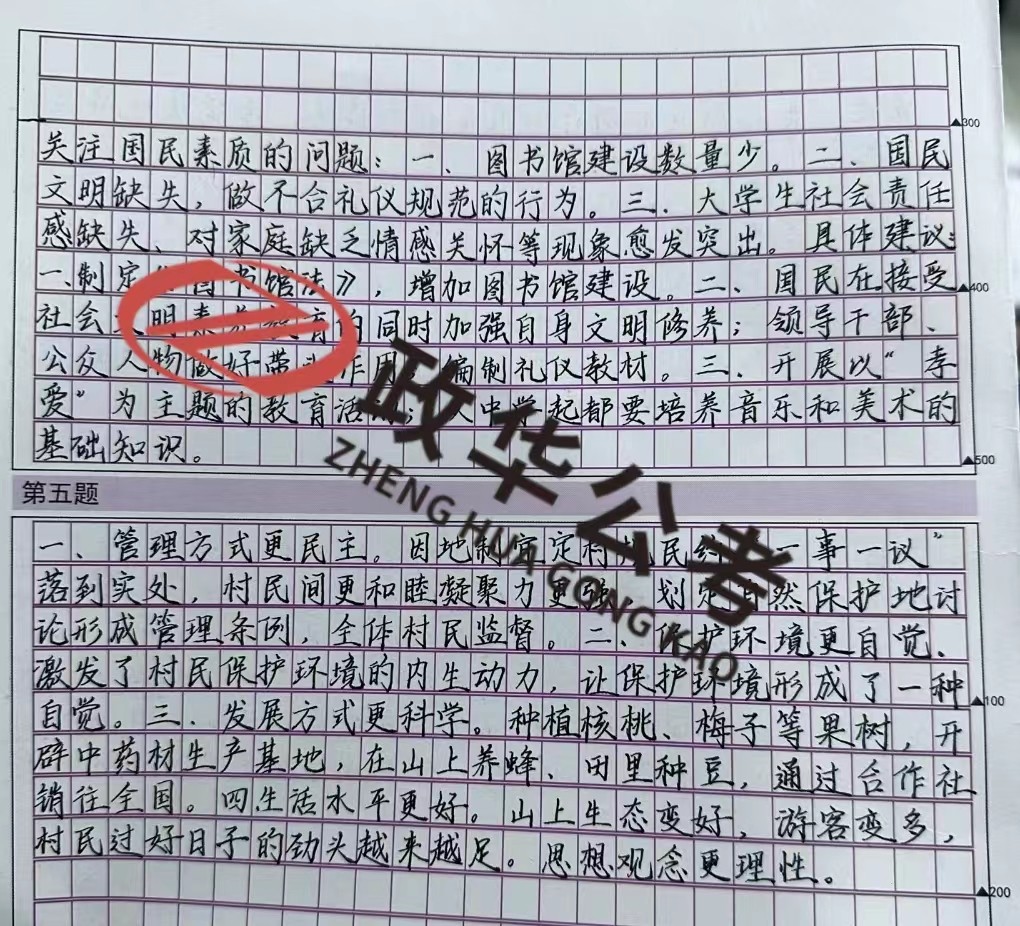 300
关注国民素质的问题：一、图书馆建设数量少。二、国民
文明缺失，做不合礼仪规范的行为。三、大学生社会责任
感缺失、对家庭缺乏情感关怀等现象愈发突出。具体建议：
一、制定《图书馆法》，增加图书馆建设。二、国民在接受
400
社会文明素养教育的同时加强自身文明修养；领导干部、
公众人物做好带头作用；编制礼仪教材。三、开展以“孝
爱”为主题的教育活动；从中学起都要培养音乐和美术的
基础知识。
500
政华公考
ZHENG HUA GONG KAO
第五题
一、管理方式更民主。因地制宜定村规民约“一事一议”
落到实处，村民间更和睦凝聚力更强。划定自然保护地讨
论形成管理条例，全体村民监督。二、保护环境更自觉、
激发了村民保护环境的内生动力，让保护环境形成了一种
100
自觉。三、发展方式更科学。种植核桃、梅子等果树，开
辟中药材生产基地，在山上养蜂、田里种豆，通过合作社
销往全国。四生活水平更好。山上生态变好，游客变多，
村民过好日子的劲头越来越足。思想观念更理性。
200